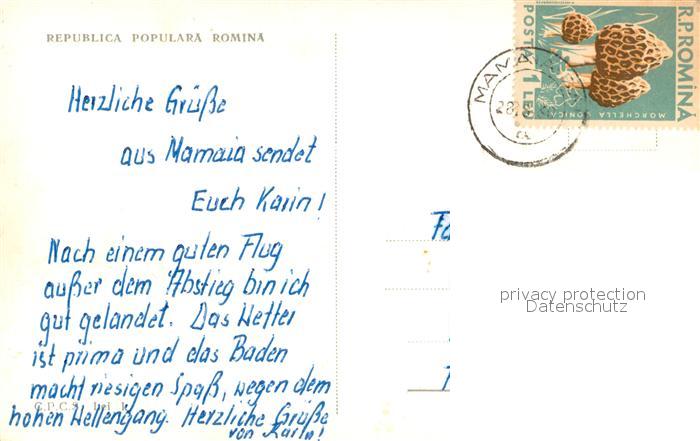 REPUBLICA POPULARĂ ROMÎNĂ
Herzliche Grüße
aus Mamaia sendet
Euch Karin!
Nach einem guten Flug
außer dem Abstieg bin ich
gut gelandet. Das Wetter
ist prima und das Baden
macht riesigen Spaß, wegen dem
hohen Wellengang. Herzliche Grüße
von Karin!
C.P.C.S.
R.P.ROMÎNĂ
POSTA
1 L
MORCHELLA CONICA
MAMAIA
28
privacy protection
Datenschutz